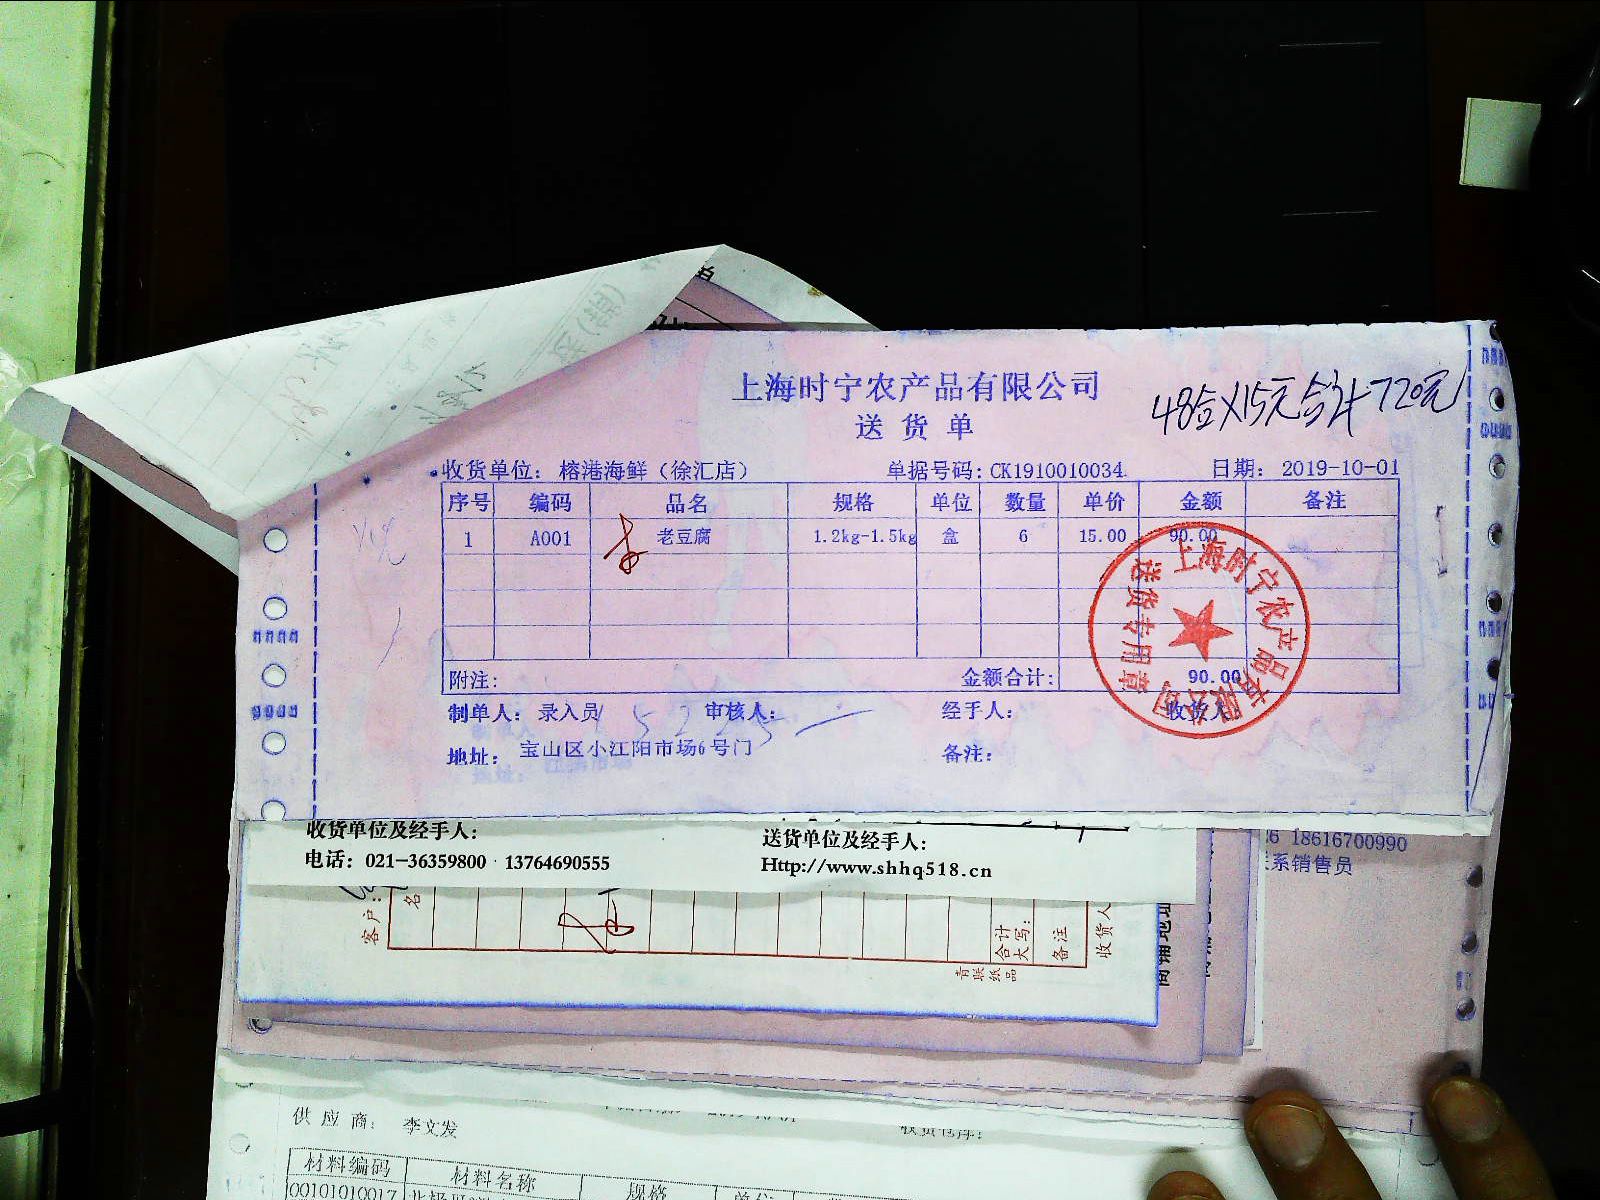 上海时宁农产品有限公司
送货单
48盒X15元合计720元
收货单位： 榕港海鲜（徐汇店） 单据号码：CK1910010034 日期： 2019-10-01
序号 编码 品名 规格 单位 数量 单价 金额 备注
1 A001 老豆腐 1.2kg-1.5kg 盒 6 15.00 90.00
附注： 金额合计： 90.00
制单人： 录入员 审核人： 经手人： 收货人
地址： 宝山区小江阳市场6号门 备注：
上海时宁农产品有限公司
送货专用章
收货单位及经手人： 送货单位及经手人：
电话：021-36359800 13764690555 Http://www.shhq518.cn
18616700990
系销售员
客户：
名
合计大写：
备注
收货人
青联纸品
供应商： 李文发
材料编码 材料名称 规格
00101010017